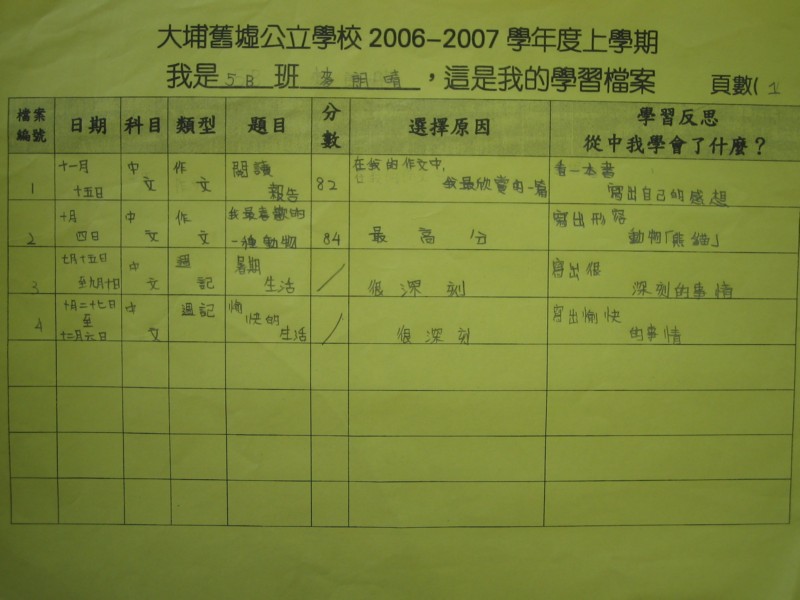 大埔舊墟公立學校 2006–2007 學年度上學期
我是 5B 班 麥朗晴 ，這是我的學習檔案 頁數( 1
檔案編號 日期 科目 類型 題目 分數 選擇原因 學習反思 從中我學會了什麼？
1 十一月十五日 中文 作文 閱讀報告 82 在我的作文中,我最欣賞的一篇 看一本書寫出自己的感想
2 十月四日 中文 作文 我最喜歡的一種動物 84 最高分 寫出形容動物「熊貓」
3 七月十五日至九月十日 中文 週記 暑期生活 / 很深刻 寫出很深刻的事情
4 十月二十七日至十二月六日 中文 週記 愉快的生活 / 很深刻 寫出愉快的事情